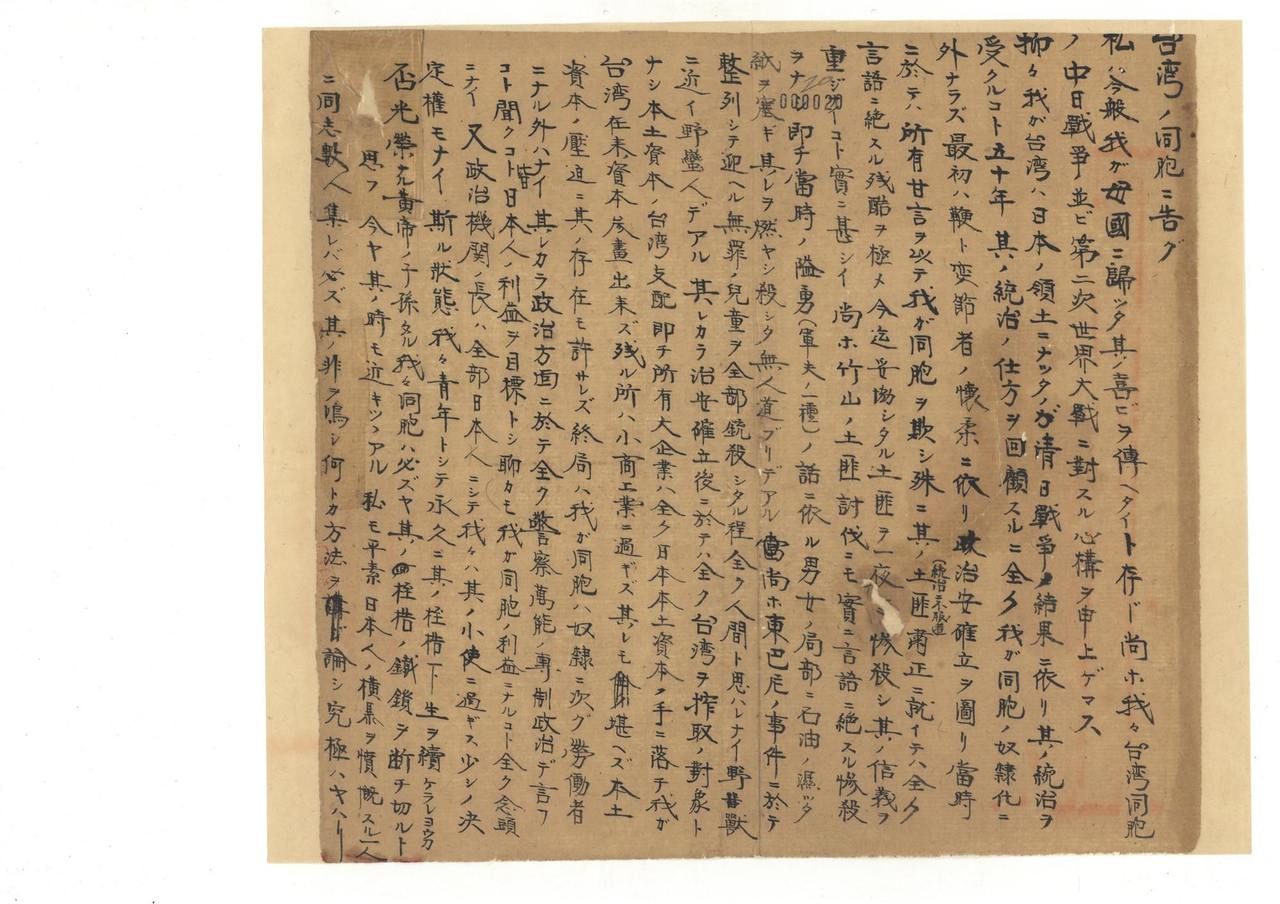 台湾ノ同胞ニ告グ
私ハ今般我ガ母國ニ歸ツタ其ノ喜ビヲ傳ヘタイト存ジ尚ホ我々台湾同胞
ノ中日戰爭並ビ第二次世界大戰ニ對スル心構ヲ申上ゲマス
抑々我ガ台湾ハ日本ノ領土ニナツタノガ清日戰爭ノ結果ニ依リ其ノ統治ヲ
受クルコト五十年 其ノ統治ノ仕方ヲ回顧スルニ全ク我ガ同胞ノ奴隷化ニ
外ナラズ 最初ハ鞭ト変節者ノ懐柔ニ依リ政治安確立ヲ圖リ當時
ニ於テハ所有甘言ヲ以テ我ガ同胞ヲ欺シ殊ニ其ノ土匪(統治ニ不服道)肅正ニ就イテハ全ク
言語ニ絶スル残酷ヲ極メ今迄妥協シタル土匪ヲ一夜ニ惨殺シ其ノ信義ヲ
重ジナイコト實ニ甚シイ 尚ホ竹山ノ土匪討伐ニモ實ニ言語ニ絶スル惨殺
000020
ヲナシ即チ當時ノ隘勇(軍夫ノ一種)ノ話ニ依ル男女ノ局部ニ石油ノ濕ツタ
紙ヲ塞ギ其レヲ燃ヤシ殺シタ無人道ブリデアル 尚ホ東巴尼ノ事件ニ於テ
整列シテ迎ヘル無罪ノ兒童ヲ全部銃殺シタル程全ク人間ト思ハレナイ野獸
ニ近イ野蠻人デアル 其レカラ治安確立後ニ於テハ全ク台湾ヲ搾取ノ對象ト
ナシ本土資本ノ台湾支配即チ所有大企業ハ全ク日本本土資本ノ手ニ落チ我ガ
台湾在来資本參畫出来ズ残ル所ハ小商工業ニ過ギズ其レモ堪ヘズ本土
資本ノ壓迫ニ其ノ存在モ許サレズ終局ハ我ガ同胞ハ奴隷ニ次グ勞働者
ニナル外ハナイ 其レカラ政治方面ニ於テ全ク警察萬能ノ專制政治デ言フ
コト聞クコト皆日本人ノ利益ヲ目標トシ聊カモ我ガ同胞ノ利益ニナルコト全ク念頭
ニナイ 又政治機関ノ長ハ全部日本人ニシテ我々ハ其ノ小使ニ過ギス少シノ決
定權モナイ 斯ル狀態我々青年トシテ永久ニ其ノ桎梏下ニ生ヲ續ケラレヨウカ
否光榮ナル黃帝ノ子孫タル我々同胞ハ必ズヤ其ノ桎梏ノ鐵鎖ヲ断チ切ルト
思フ 今ヤ其ノ時モ近キツヽアル 私モ平素日本人ノ横暴ヲ憤慨スル一人
ニ同志數人集レバ必ズ其ノ非ヲ鳴シ何トカ方法ヲ論シ究極ハヤハリ